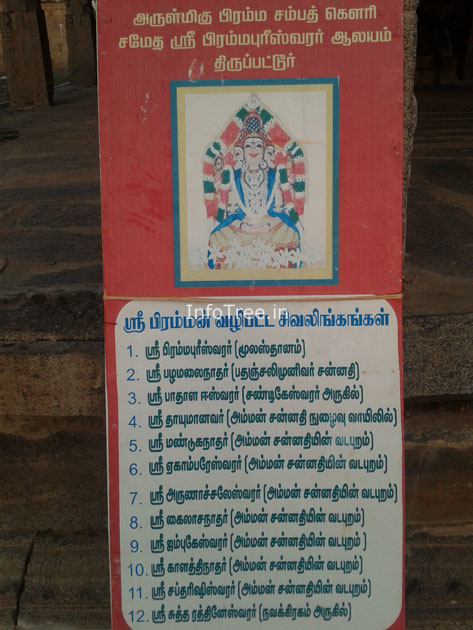 அருள்மிகு பிரம்ம சம்பத் கௌரி
சமேத ஸ்ரீ பிரம்மபுரீஸ்வரர் ஆலயம்
திருப்பட்டூர்
InfoTree.in
ஸ்ரீ பிரம்மன் வழிபட்ட சிவலிங்கங்கள்
1. ஸ்ரீ பிரம்மபுரீஸ்வரர் (மூலஸ்தானம்)
2. ஸ்ரீ பழமலைநாதர் (பதஞ்சலிமுனிவர் சன்னதி)
3. ஸ்ரீ பாதாள ஈஸ்வரர் (சண்டிகேஸ்வரர் அருகில்)
4. ஸ்ரீ தாயுமானவர் (அம்மன் சன்னதி நுழைவு வாயிலில்)
5. ஸ்ரீ மண்டுகநாதர் (அம்மன் சன்னதியின் வடபுறம்)
6. ஸ்ரீ ஏகாம்பரேஸ்வரர் (அம்மன் சன்னதியின் வடபுறம்)
7. ஸ்ரீ அருணாச்சலேஸ்வரர் (அம்மன் சன்னதியின் வடபுறம்)
8. ஸ்ரீ கைலாசநாதர் (அம்மன் சன்னதியின் வடபுறம்)
9. ஸ்ரீ ஜம்புகேஸ்வரர் (அம்மன் சன்னதியின் வடபுறம் )
10. ஸ்ரீ காளத்திநாதர் (அம்மன் சன்னதியின் வடபுறம்)
11. ஸ்ரீ சப்தரிஷீஸ்வரர் (அம்மன் சன்னதியின் வடபுறம்)
12. ஸ்ரீ சுத்த ரத்தினேஸ்வரர் (நவக்கிரகம் அருகில்)